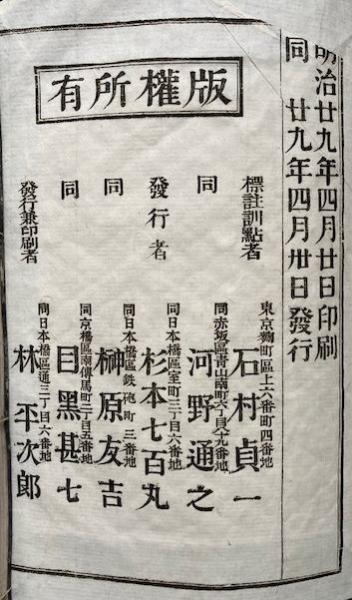 明治廿九年四月廿日印刷
同 廿九年四月卅日發行
版權所有
標註訓點者 東京麴町區上六番町四番地 石村貞一
同 同赤坂區青山南町六丁目 河野通之
發行者 同日本橋區室町三丁目六番地 杉本七百丸
同 同日本橋區鉄砲町三番地 榊原友吉
同 同京橋區南傳馬町二丁目五番地 目黑甚七
發行兼印刷者 同日本橋區通三丁目六番地 林平次郎